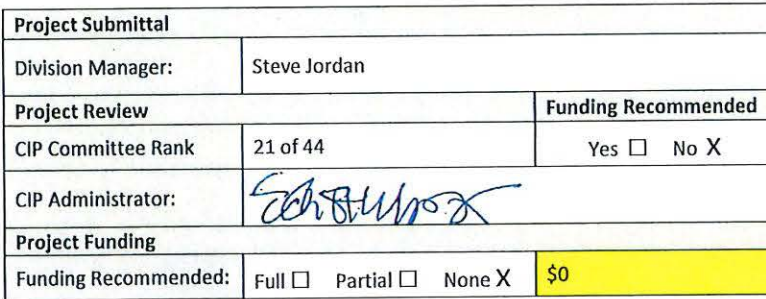 Project Submittal
Division Manager: Steve Jordan
Project Review Funding Recommended
CIP Committee Rank 21 of 44 Yes ☐ No X
CIP Administrator:
Project Funding
Funding Recommended: Full ☐ Partial ☐ None X $0